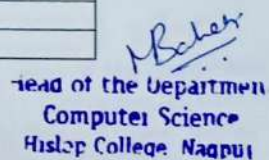 MBaheti
Head of the Departmen
Computer Science
Hislop College, Nagpur